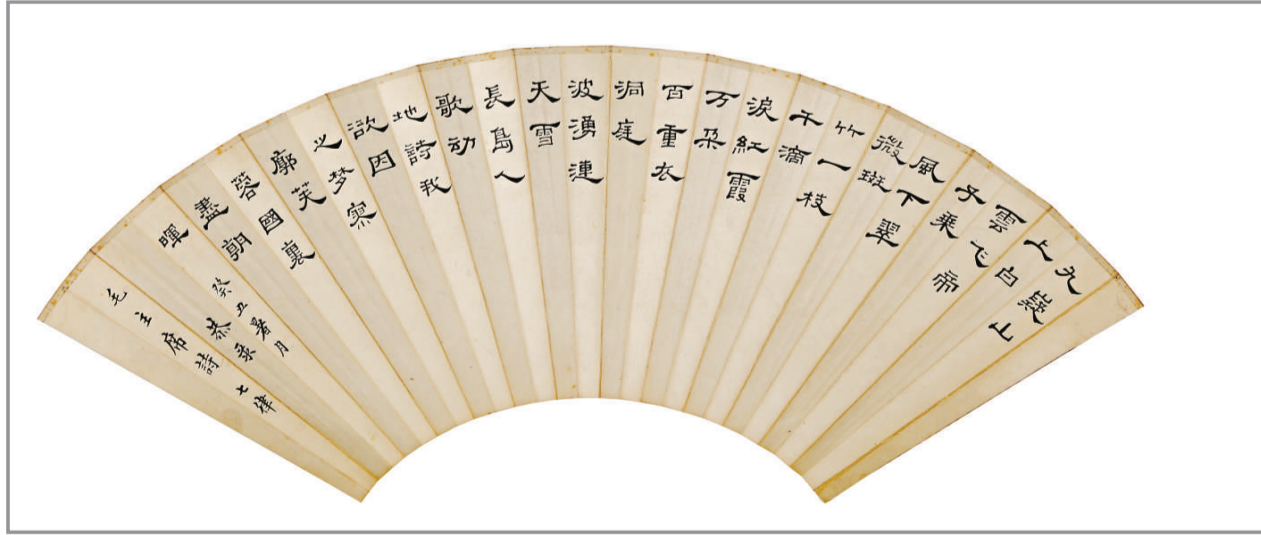 九嶷山
上白
雲飞帝
子乘
風下翠
微斑
竹一枝
千滴
淚紅霞
万朵
百重衣
洞庭
波湧連
天雪
長島人
歌动
地詩我
欲因
之梦寥
廓芙
蓉國裏
盡朝
暉
癸丑暑月
恭彔
毛主席詩七律